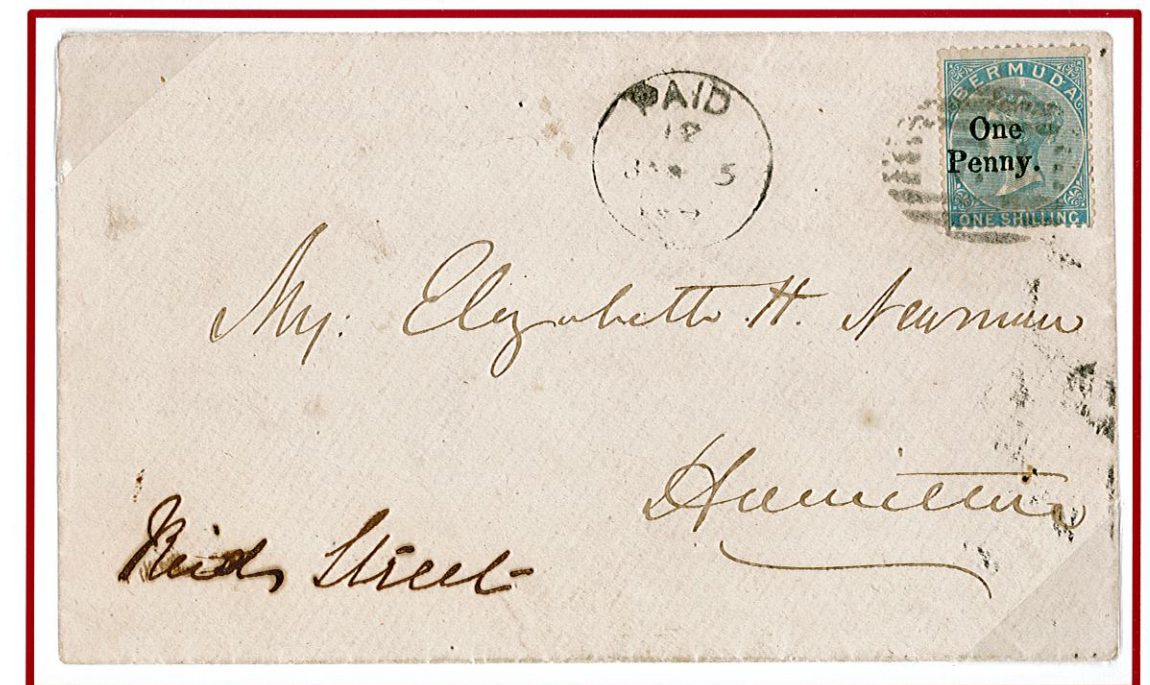 PAID
JAN 5
BERMUDA
One
Penny.
ONE SHILLING
Elizabeth H. Newman
Hamilton
Reids Street